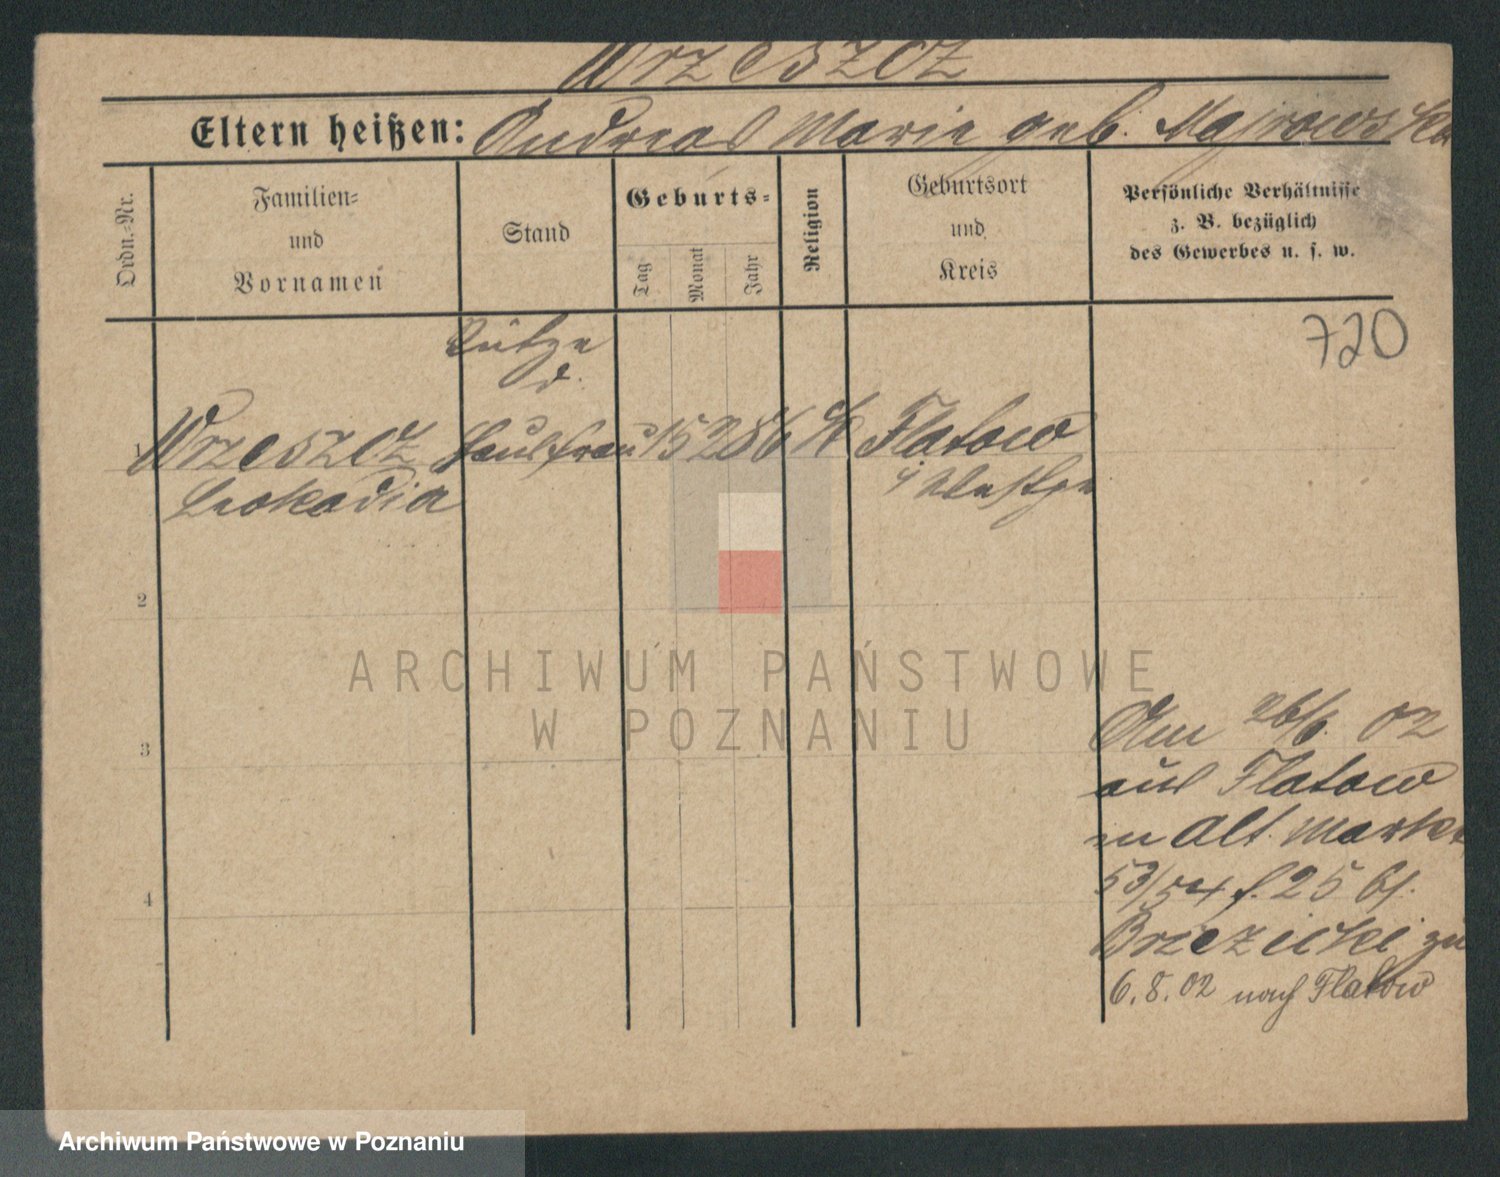 Wrzeszcz
Eltern heißen: Andreas Marie geb. Majrowska
Ordn.-Nr.
Familien-
und
Vornamen
Stand
Geburts-
Tag
Monat
Jahr
Religion
Geburtsort
und
Kreis
Persönliche Verhältnisse
z. B. bezüglich
des Gewerbes u. s. w.
720
Stütze
d.
1 Wrzeszcz Hausfrau 15 2 86 k Flatow
Leokadia
i/Westpr
2
3
4
Am 26/6. 02
aus Flatow
n Alt. Markt
53/54 f. 25 bf.
Brzezicki zu
6. 8. 02 nach Flatow
ARCHIWUM PAŃSTWOWE
W POZNANIU
Archiwum Państwowe w Poznaniu